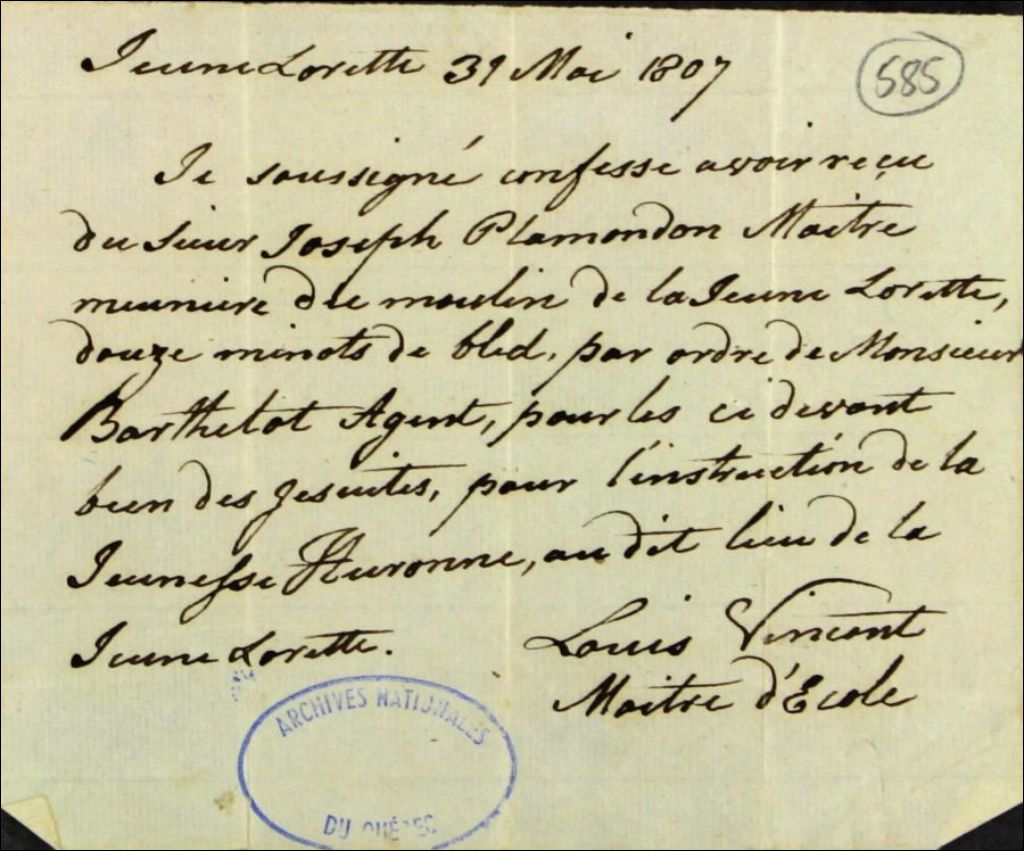 Jeune Lorette 31 Mai 1807
585
Je soussigné confesse avoir reçu
du Sieur Joseph Plamondon Maitre
meuniere du moulin de la Jeune Lorette,
douze minots de bled, par ordre de Monsieur
Barthelot Agent, pour les ci devant
bien des Jesuites, pour l'instruction de la
Jeunesse Huronne, au dit lieu de la
Jeune Lorette.
Louis Vincent
Maitre d'Ecole
ARCHIVES NATIONALES
DU QUÉBEC